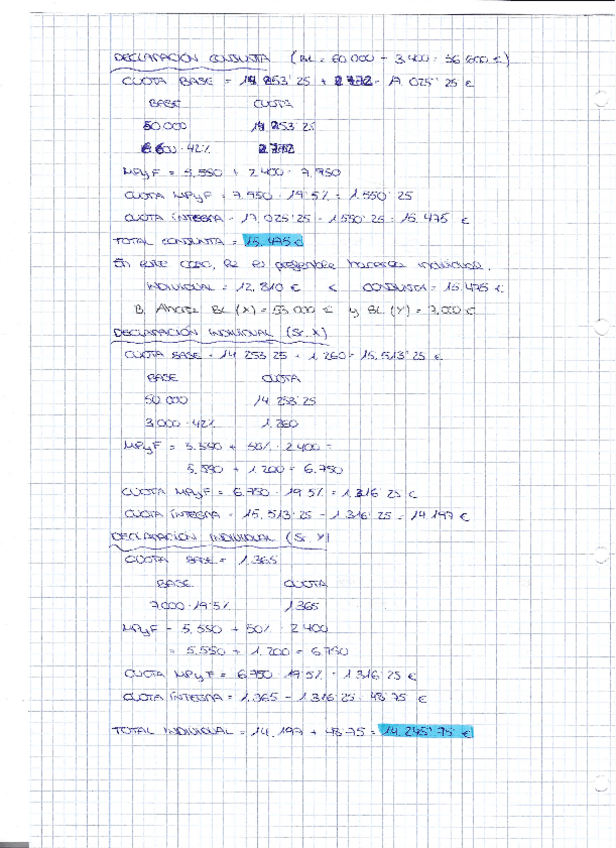 DECLARACIÓN CONJUNTA (BL = 60 000 - 3.400 = 56 600 €)
CUOTA BASE = 14 253'25 + 2 772 = 17 025'25 €
BASE CUOTA
50 000 14 253'25
6 600 · 42% 2 772
MPyF = 5.550 + 2 400 = 7.950
CUOTA MPyF = 7.950 · 19'5% = 1.550'25
CUOTA ÍNTEGRA = 17 025'25 - 1 550'25 = 15.475 €
TOTAL CONJUNTA = 15.475 €
En este caso, es preferible hacerla individual.
INDIVIDUAL = 12.810 € < CONJUNTA = 15 475 €
B. Ahora BL (X) = 53 000 € y BL (Y) = 7.000 €
DECLARACIÓN INDIVIDUAL (Sr. X)
CUOTA BASE = 14 253'25 + 1.260 = 15.513'25 €
BASE CUOTA
50 000 14 253'25
3.000 · 42% 1.260
MPyF = 5.550 + 50% · 2 400 =
5.550 + 1 200 = 6.750
CUOTA MPyF = 6.750 · 19'5% = 1.316'25 €
CUOTA ÍNTEGRA = 15.513'25 - 1.316'25 = 14 197 €
DECLARACIÓN INDIVIDUAL (Sr. Y)
CUOTA BASE = 1.365
BASE CUOTA
7.000 · 19'5% 1365
MPyF = 5.550 + 50% · 2 400
= 5.550 + 1.200 = 6.750
CUOTA MPyF = 6.750 · 19'5% = 1.316'25 €
CUOTA ÍNTEGRA = 1.365 - 1.316'25 = 48'75 €
TOTAL INDIVIDUAL = 14.197 + 48'75 = 14.245'75 €